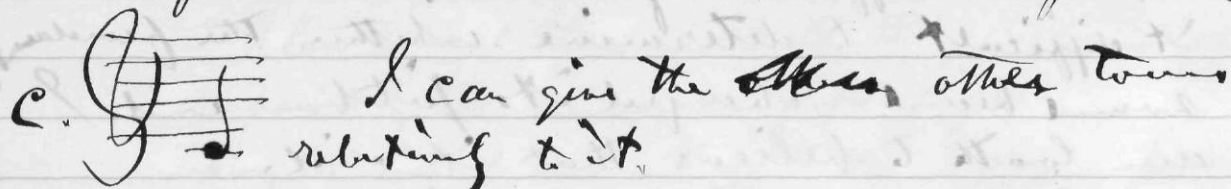 C. I can give the other tones
relatively to it.